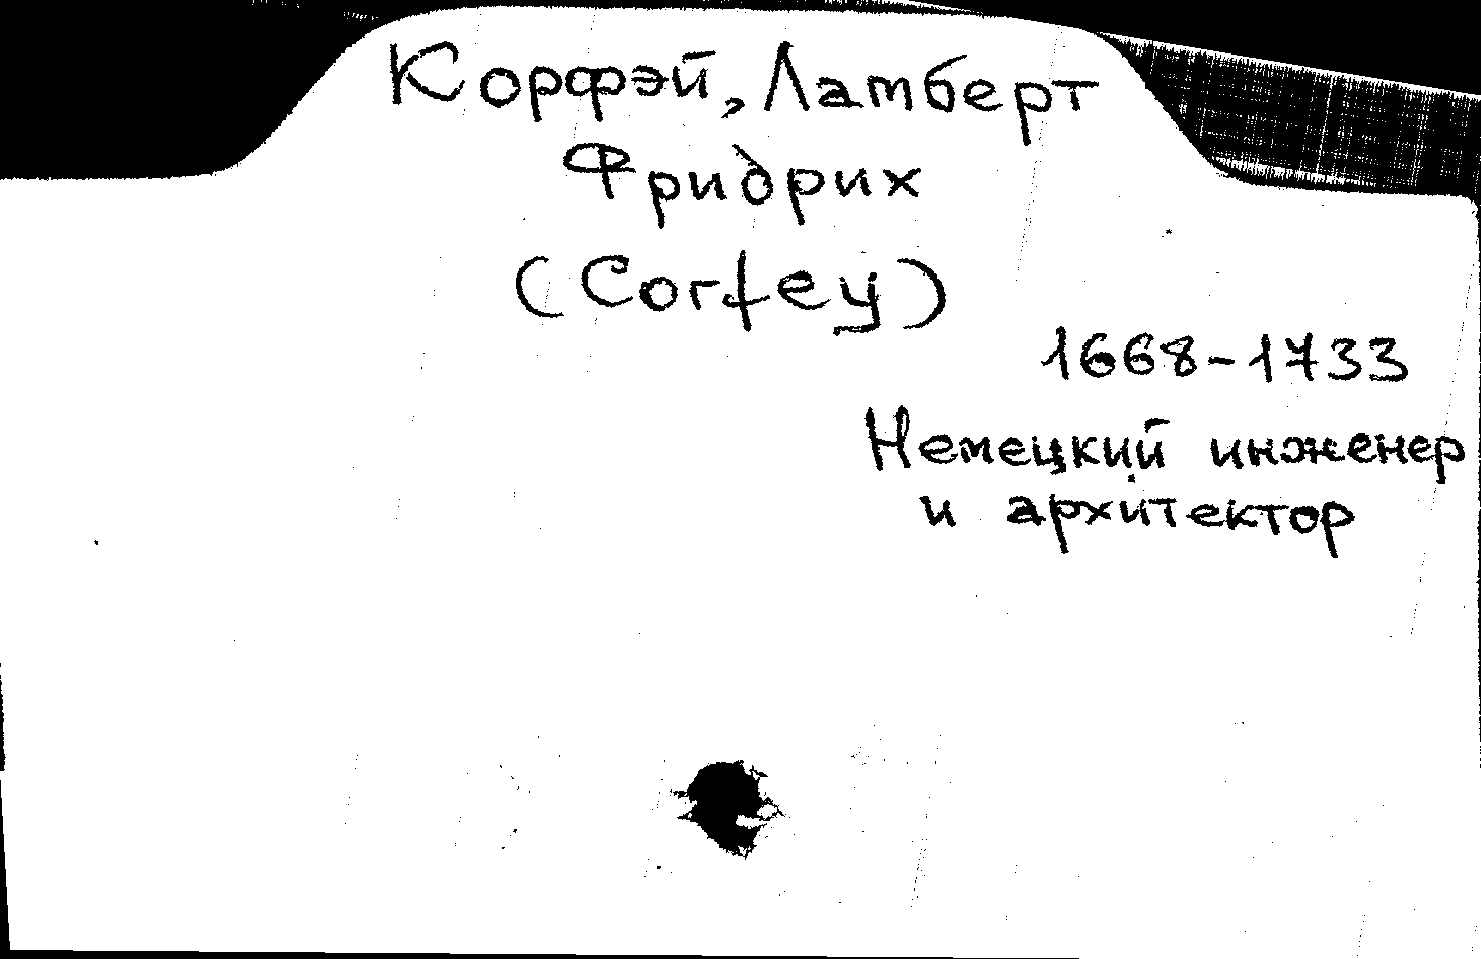 Корфэй, Ламберт
Фридрих
(Corfey)
1668-1733
Немецкий инженер
и архитектор